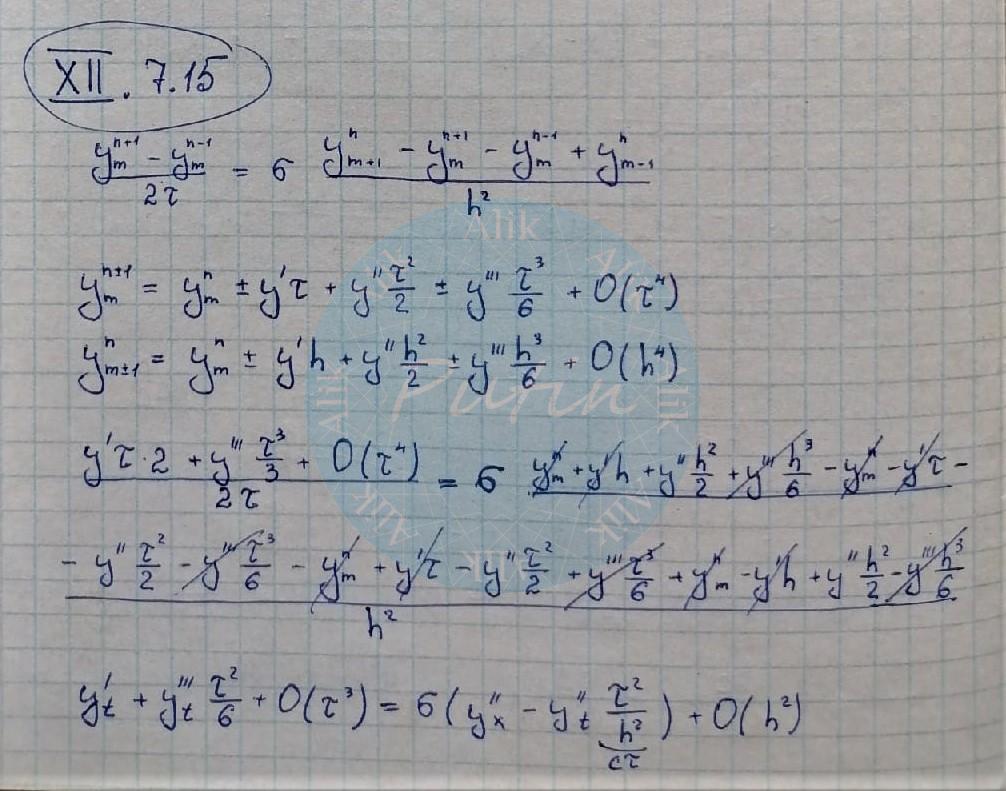 XII. 7.15
(y_m^{n+1} - y_m^{n-1}) / 2τ = 6 (y_{m+1}^n - y_m^{n+1} - y_m^{n-1} + y_{m-1}^n) / h²
y_m^{n±1} = y_m^n ± y'τ + y'' τ²/2 ± y''' τ³/6 + O(τ⁴)
y_{m±1}^n = y_m^n ± y'h + y'' h²/2 ± y''' h³/6 + O(h⁴)
(y'τ·2 + y''' τ³/3 + O(τ⁴)) / 2τ = 6 (y_m^n + y'h + y'' h²/2 + y''' h³/6 - y_m^n - y'τ -
- y'' τ²/2 - y''' τ³/6 - y_m^n + y'τ - y'' τ²/2 + y''' τ³/6 + y_m^n - y'h + y'' h²/2 - y''' h³/6) / h²
y'_t + y'''_t τ²/6 + O(τ³) = 6 (y''_x - y''_t τ²/h²) + O(h²)
cτ
Alik Purin